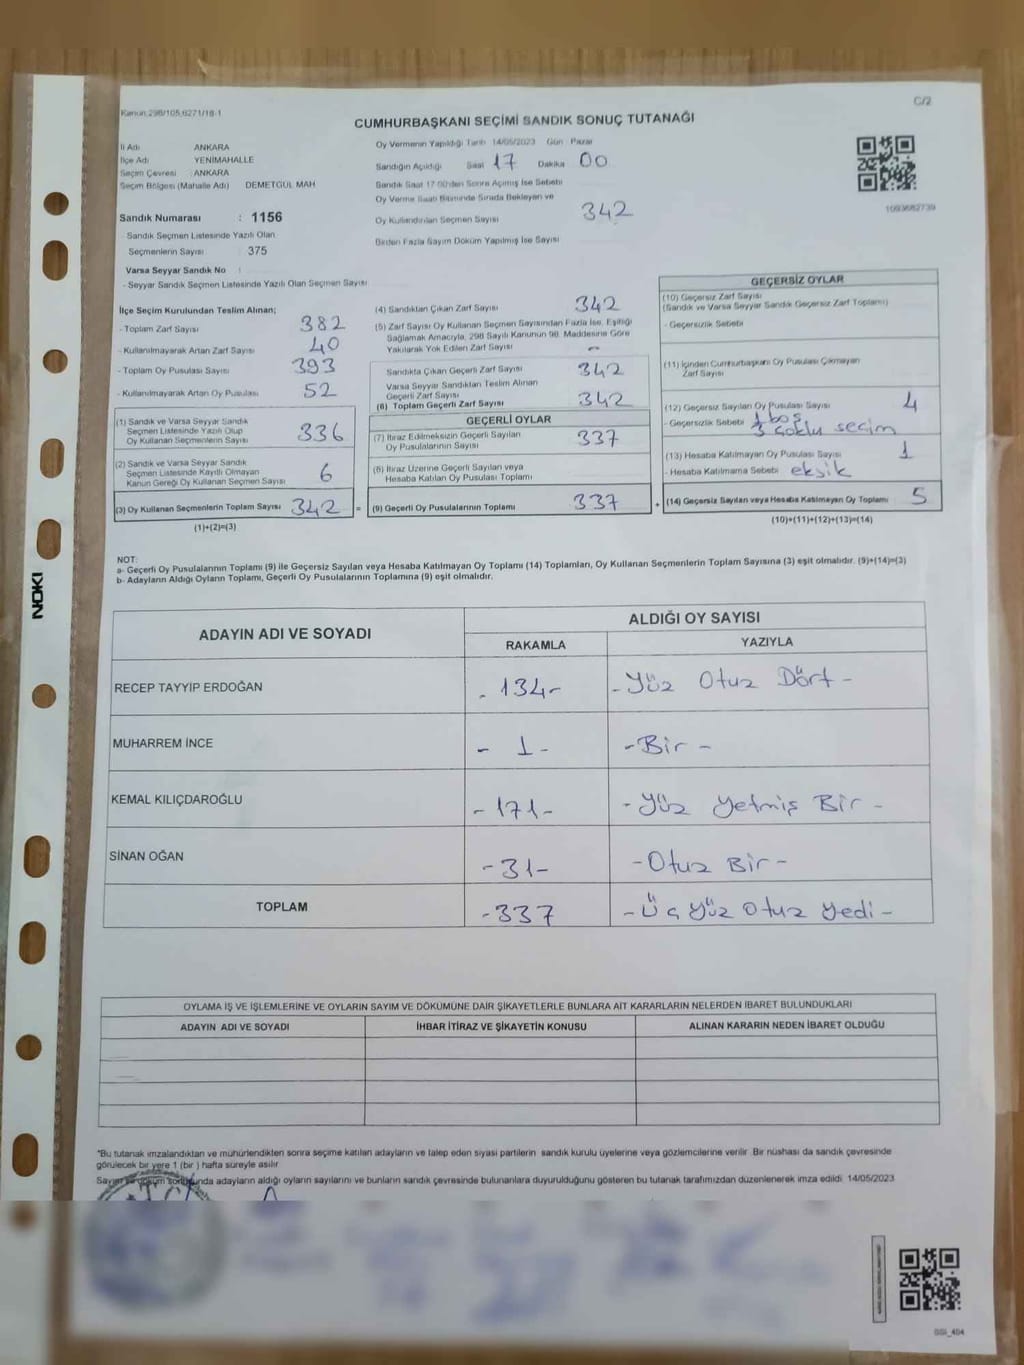 Kanun:298/105,6271/18-1
C/2
CUMHURBAŞKANI SEÇİMİ SANDIK SONUÇ TUTANAĞI
İl Adı ANKARA
İlçe Adı YENİMAHALLE
Seçim Çevresi : ANKARA
Seçim Bölgesi (Mahalle Adı) DEMETGÜL MAH
Sandık Numarası : 1156
- Sandık Seçmen Listesinde Yazılı Olan
Seçmenlerin Sayısı 375
Varsa Seyyar Sandık No :
- Seyyar Sandık Seçmen Listesinde Yazılı Olan Seçmen Sayısı
Oy Vermenin Yapıldığı Tarih 14/05/2023 Gün Pazar
Sandığın Açıldığı Saat 17 Dakika 00
Sandık Saat 17.00'den Sonra Açılmış İse Sebebi
Oy Verme Saati Bitiminde Sırada Bekleyen ve
Oy Kullandırılan Seçmen Sayısı 342
Birden Fazla Sayım Döküm Yapılmış İse Sayısı
1093682739
İlçe Seçim Kurulundan Teslim Alınan;
- Toplam Zarf Sayısı 382
- Kullanılmayarak Artan Zarf Sayısı 40
- Toplam Oy Pusulası Sayısı 393
- Kullanılmayarak Artan Oy Pusulası 52
(1) Sandık ve Varsa Seyyar Sandık
Seçmen Listesinde Yazılı Olup
Oy Kullanan Seçmenlerin Sayısı 336
(2) Sandık ve Varsa Seyyar Sandık
Seçmen Listesinde Kayıtlı Olmayan
Kanun Gereği Oy Kullanan Seçmen Sayısı 6
(3) Oy Kullanan Seçmenlerin Toplam Sayısı 342 =
(1)+(2)=(3)
(4) Sandıktan Çıkan Zarf Sayısı 342
(5) Zarf Sayısı Oy Kullanan Seçmen Sayısından Fazla İse, Eşitliği
Sağlamak Amacıyla, 298 Sayılı Kanunun 98. Maddesine Göre
Yakılarak Yok Edilen Zarf Sayısı -
Sandıkta Çıkan Geçerli Zarf Sayısı 342
Varsa Seyyar Sandıktan Teslim Alınan
Geçerli Zarf Sayısı
(6) Toplam Geçerli Zarf Sayısı 342
GEÇERLİ OYLAR
(7) İtiraz Edilmeksizin Geçerli Sayılan
Oy Pusulalarının Sayısı 337
(8) İtiraz Üzerine Geçerli Sayılan veya
Hesaba Katılan Oy Pusulası Toplamı
(9) Geçerli Oy Pusulalarının Toplamı 337 +
GEÇERSİZ OYLAR
(10) Geçersiz Zarf Sayısı
(Sandık ve Varsa Seyyar Sandık Geçersiz Zarf Toplamı)
- Geçersizlik Sebebi
(11) İçinden Cumhurbaşkanı Oy Pusulası Çıkmayan
Zarf Sayısı
(12) Geçersiz Sayılan Oy Pusulası Sayısı 4
- Geçersizlik Sebebi 1 boş
3 çoklu seçim
(13) Hesaba Katılmayan Oy Pusulası Sayısı 1
- Hesaba Katılmama Sebebi eksik
(14) Geçersiz Sayılan veya Hesaba Katılmayan Oy Toplamı 5
(10)+(11)+(12)+(13)=(14)
NOT:
a- Geçerli Oy Pusulalarının Toplamı (9) ile Geçersiz Sayılan veya Hesaba Katılmayan Oy Toplamı (14) Toplamları, Oy Kullanan Seçmenlerin Toplam Sayısına (3) eşit olmalıdır. (9)+(14)=(3)
b- Adayların Aldığı Oyların Toplamı, Geçerli Oy Pusulalarının Toplamına (9) eşit olmalıdır.
NOKI
ADAYIN ADI VE SOYADI ALDIĞI OY SAYISI
RAKAMLA YAZIYLA
RECEP TAYYİP ERDOĞAN - 134- -Yüz Otuz Dört -
MUHARREM İNCE - 1 - -Bir -
KEMAL KILIÇDAROĞLU -171- -Yüz Yetmiş Bir -
SİNAN OĞAN -31- -Otuz Bir -
TOPLAM -337 -Üç Yüz Otuz Yedi -
OYLAMA İŞ VE İŞLEMLERİNE VE OYLARIN SAYIM VE DÖKÜMÜNE DAİR ŞİKAYETLERLE BUNLARA AİT KARARLARIN NELERDEN İBARET BULUNDUKLARI
ADAYIN ADI VE SOYADI İHBAR İTİRAZ VE ŞİKAYETİN KONUSU ALINAN KARARIN NEDEN İBARET OLDUĞU
*Bu tutanak imzalandıktan ve mühürlendikten sonra seçime katılan adayların ve talep eden siyasi partilerin sandık kurulu üyelerine veya gözlemcilerine verilir. Bir nüshası da sandık çevresinde
görülecek bir yere 1 (bir ) hafta süreyle asılır
Sayım ve döküm sonunda adayların aldığı oyların sayılarını ve bunların sandık çevresinde bulunanlara duyurulduğunu gösteren bu tutanak tarafımızdan düzenlenerek imza edildi. 14/05/2023